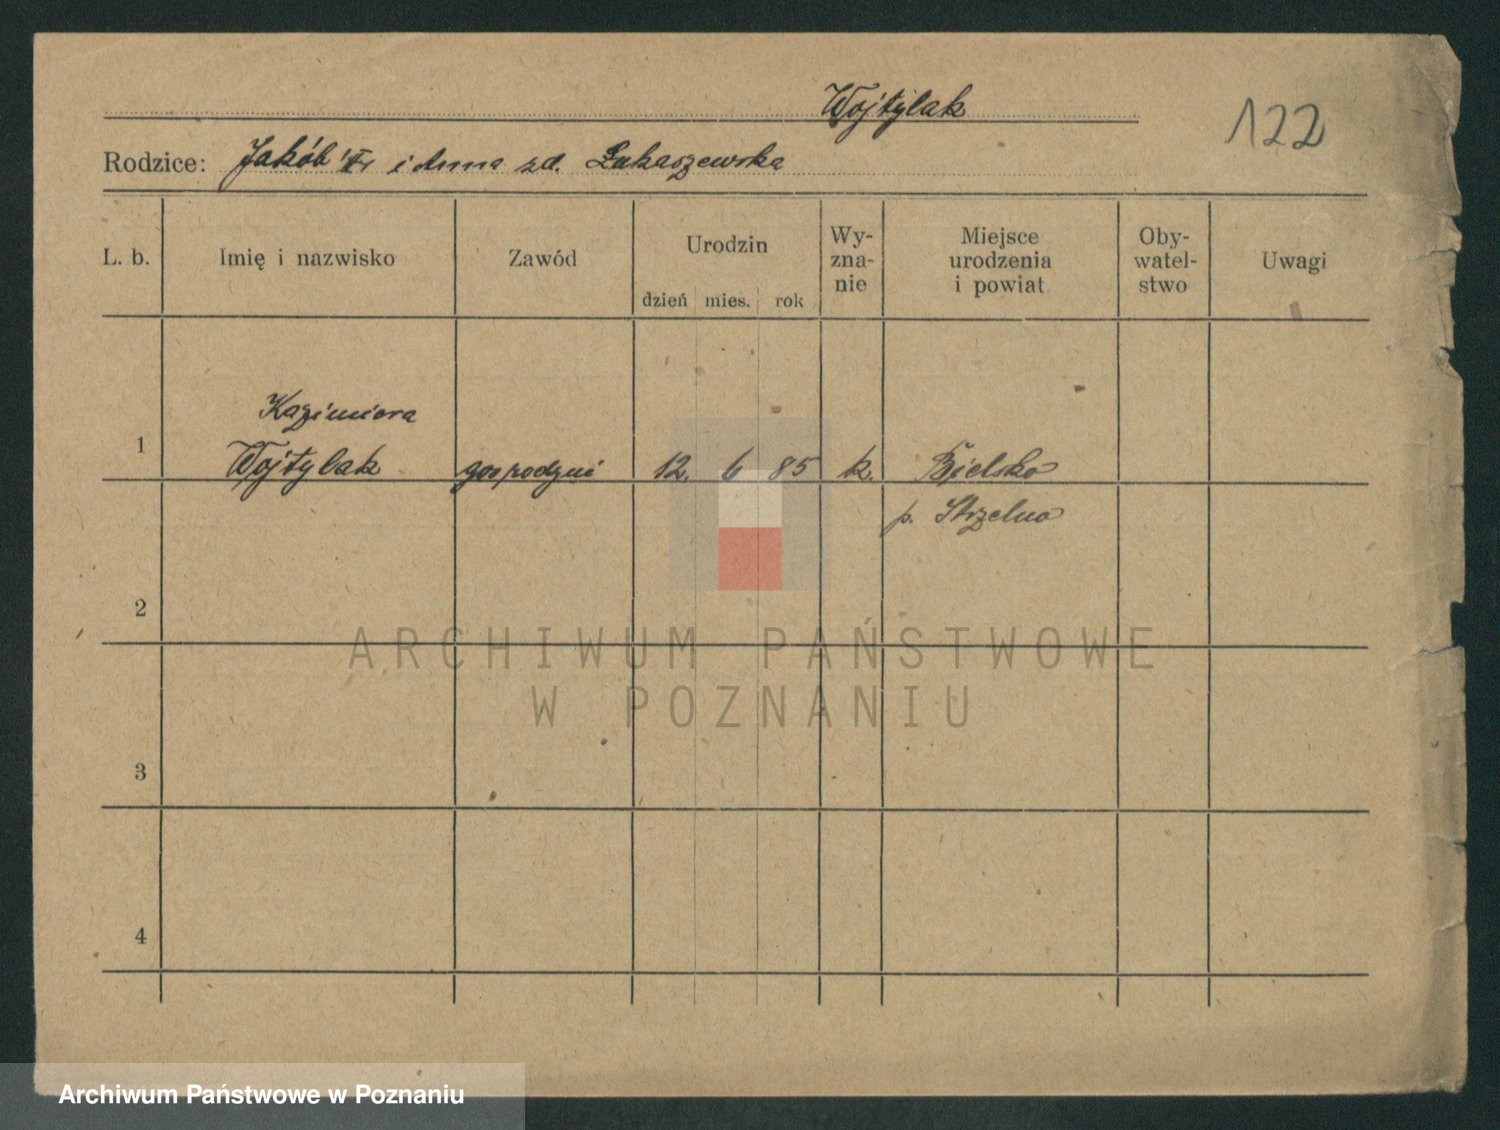 Wojtylak
122
Rodzice: Jakób i Anna zd. Łukaszewska
L. b. Imię i nazwisko Zawód Urodzin dzień mies. rok Wy-zna-nie Miejsce urodzenia i powiat Oby-watel-stwo Uwagi
Kazimiera
1 Wojtylak gospodyni 12. 6 85 k. Bielsko
p. Strzelno
2
ARCHIWUM PAŃSTWOWE
W POZNANIU
3
4
Archiwum Państwowe w Poznaniu